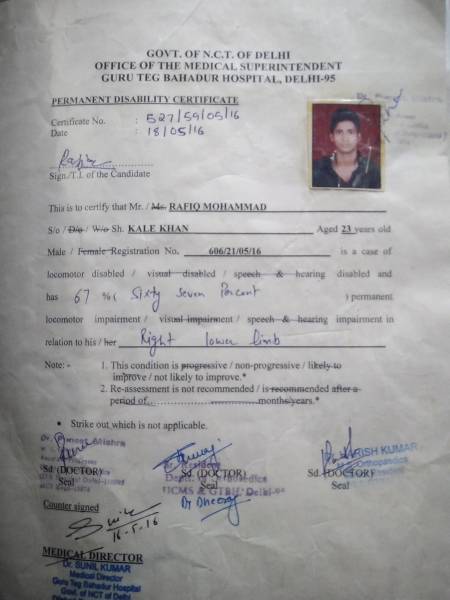 GOVT. OF N.C.T. OF DELHI
OFFICE OF THE MEDICAL SUPERINTENDENT
GURU TEG BAHADUR HOSPITAL, DELHI-95
PERMANENT DISABILITY CERTIFICATE
Certificate No. : 527/59/05/16
Date : 18/05/16
Sign./T.I. of the Candidate
This is to certify that Mr. / Ms. RAFIQ MOHAMMAD
S/o / D/o / W/o Sh. KALE KHAN Aged 23 years old
Male / Female Registration No. 606/21/05/16 is a case of
locomotor disabled / visual disabled / speech & hearing disabled and
has 67 % ( Sixty Seven Percent ) permanent
locomotor impairment / visual impairment / speech & hearing impairment in
relation to his / her Right lower limb
Note: - 1. This condition is progressive / non-progressive / likely to
improve / not likely to improve.*
2. Re-assessment is not recommended / is recommended after a
period of...............months/years.*
• Strike out which is not applicable.
Sd. (DOCTOR) Sd. (DOCTOR) Sd. (DOCTOR)
Seal Seal Seal
KRISH KUMAR
Orthopaedics
UCMS & GTBH, Delhi-95
Dr Dheeraj
Counter signed
MEDICAL DIRECTOR
Dr. SUNIL KUMAR
Medical Director
Guru Teg Bahadur Hospital
Govt. of NCT of Delhi